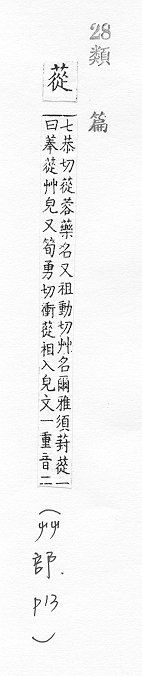 28類篇
蓯
七恭切蓯蓉藥名又祖動切艸名爾雅須葑蓯一
曰葢蓯艸皃又筍勇切衝蓯相入皃文一重音二
(艸部.p13)